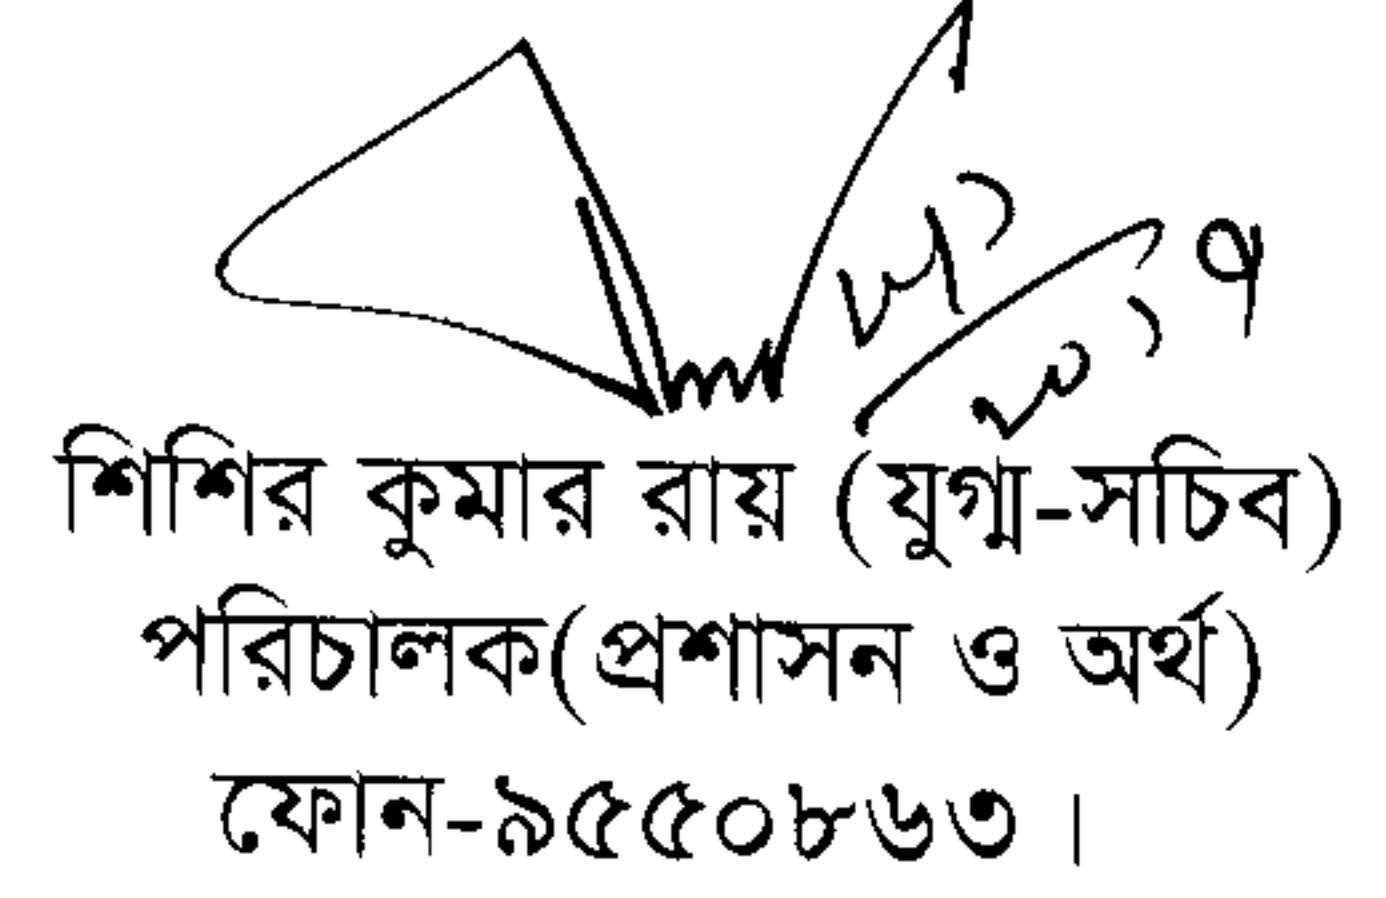 শিশির কুমার রায় (যুগ্ম-সচিব)
পরিচালক(প্রশাসন ও অর্থ)
ফোন-৯৫৫০৮৬৩।